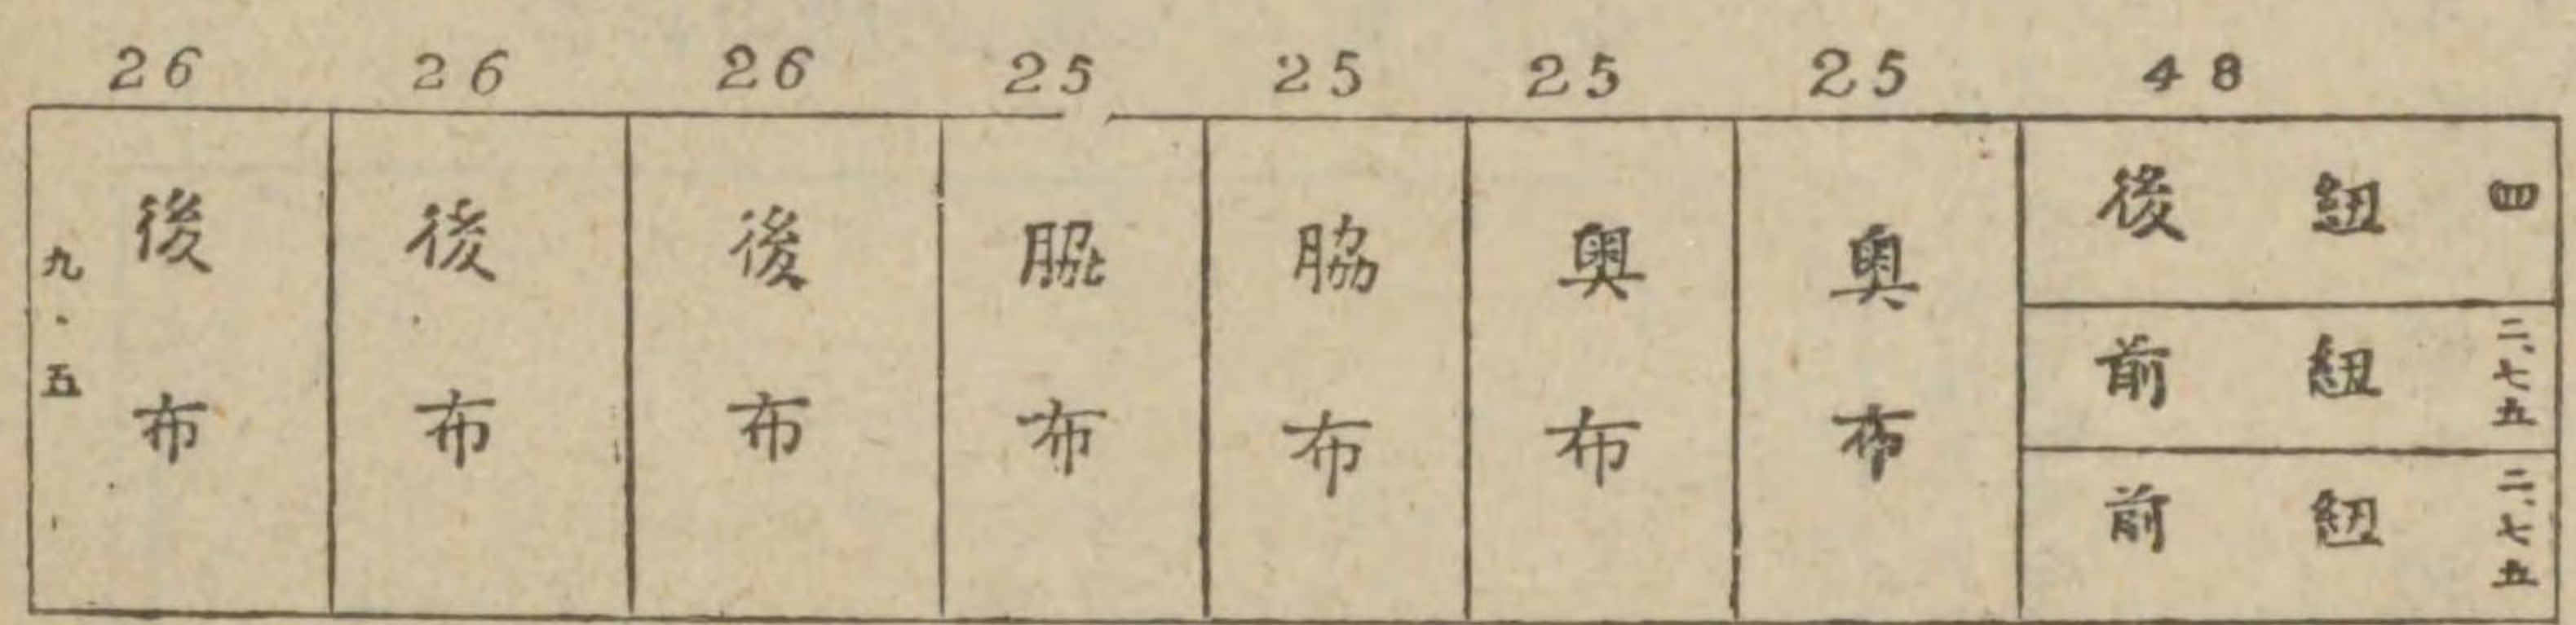 26 26 26 25 25 25 25 48
九.五
後布
後布
後布
脇布
脇布
奥布
奥布
後紐 四
前紐 二、七五
前紐 二、七五